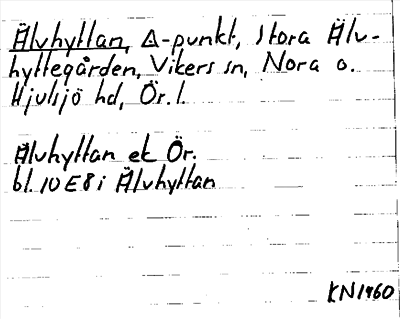 Älvhyttan, △-punkt, Stora Älv-
hyttegården, Vikers sn, Nora o.
Hjulsjö hd, Ör. l.
Älvhyttan ek Ör.
bl. 10 E 8 i Älvhyttan
KN 1960